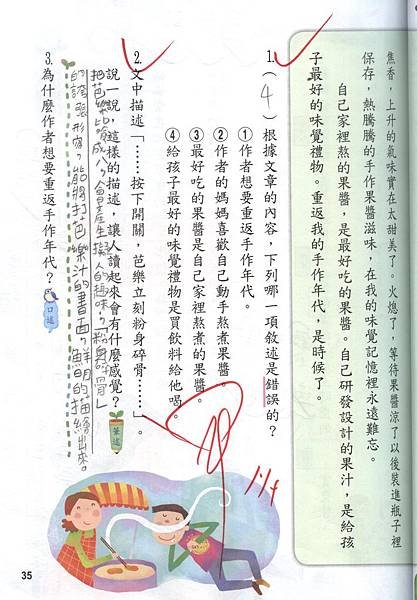 焦香，上升的氣味實在太甜美了。火熄了，等待果醬涼了以後裝進瓶子裡
保存，熱騰騰的手作果醬滋味，在我的味覺記憶裡永遠難忘。
自己家裡熬的果醬，是最好吃的果醬。自己研發設計的果汁，是給孩
子最好的味覺禮物。重返我的手作年代，是時候了。
1.（4）根據文章的內容，下列哪一項敘述是錯誤的？
①作者想要重返手作年代。
②作者的媽媽喜歡自己動手熬煮果醬。
③最好吃的果醬是自己家裡熬煮的果醬。
④給孩子最好的味覺禮物是買飲料給他喝。
2.文中描述「……按下開關，芭樂立刻粉身碎骨……」。
說一說，這樣的描述，讓人讀起來會有什麼感覺？
筆述
把芭樂比喻成人，會產生擬人的趣味，「粉身碎骨」
的誇張形容，能將打芭樂汁的畫面，鮮明的描繪出來。
3.為什麼作者想要重返手作年代？
口述
35